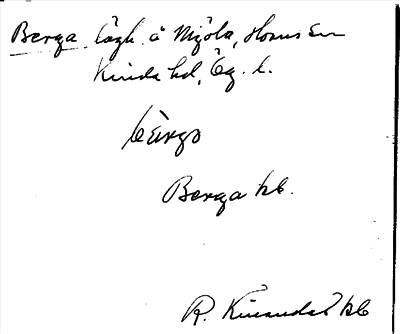 Berga lägh. å Mjöla, Horns sn
Kinda hd, Ög. l.
bärgo
Berga kb.
R. Kinanders kb